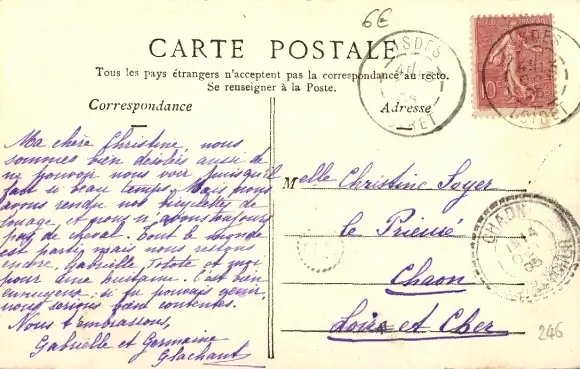 6€
CARTE POSTALE
Tous les pays étrangers n'acceptent pas la correspondance au recto.
Se renseigner à la Poste.
Correspondance
Adresse
Ma chère Christine, nous
sommes bien désolées aussi de
ne pouvoir nous voir puisqu'il
fait si beau temps. Mais nous
avons rendu nos bicyclettes de
louage, et nous n'avons toujours
pas de cheval. Tout le monde
est parti, mais nous restons
encore, Gabrielle, Totote et moi
pour une huitaine. C'est bien
ennuyeux, si tu pouvais venir,
nous serions bien contentes.
Nous t'embrassons,
Gabrielle et Germaine
Glachant
Melle Christine Soyer
le Prieuré
Chaon
Loir et Cher
ISDES
LOIRET
ISDES
LOIRET
10c
CHAON
246